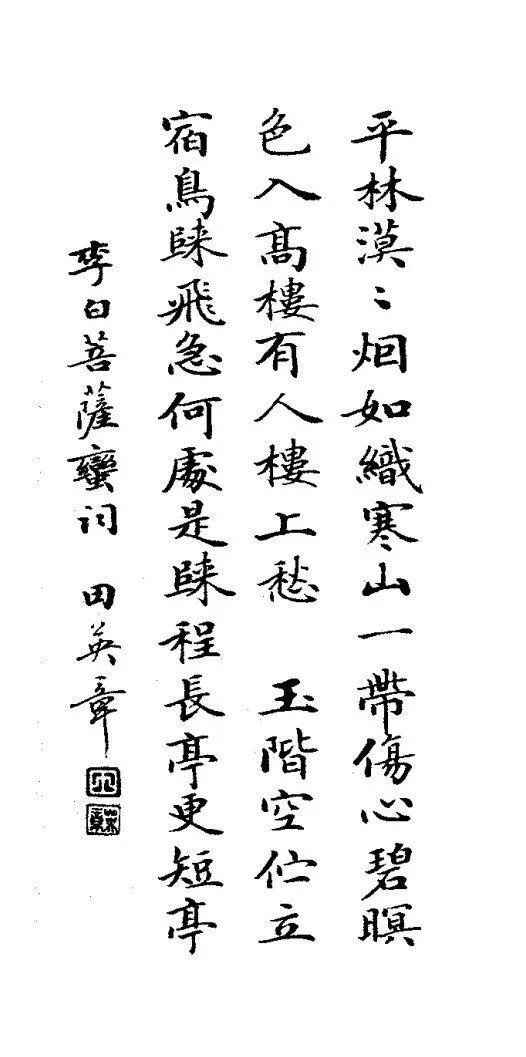 平林漠〻烟如織寒山一帶傷心碧暝
色入高樓有人樓上愁 玉階空佇立
宿鳥歸飛急何處是歸程長亭更短亭
李白菩薩蠻詞 田英章